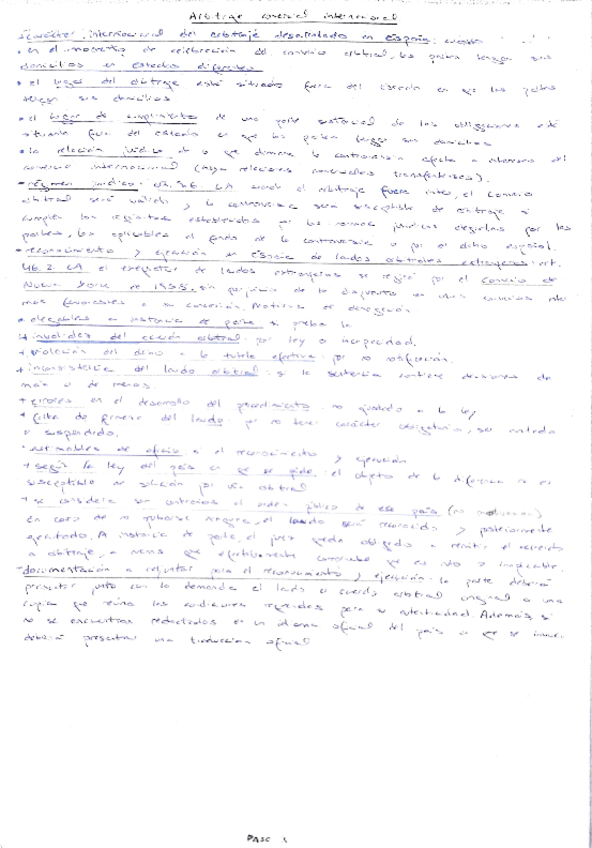 Arbitraje comercial internacional
carácter internacional del arbitraje desarrollado en España: cuando
• en el momento de celebración del convenio arbitral, las partes tengan sus
domicilios en estados diferentes
• el lugar del arbitraje esté situado fuera del Estado en que las partes
tengan sus domicilios
• el lugar de cumplimiento de una parte sustancial de las obligaciones esté
situado fuera del estado en que las partes tengan sus domicilios
• la relación jurídica de la que dimana la controversia afecta a intereses del
comercio internacional (haya relaciones comerciales transfronterizas).
- régimen jurídico: art. 9.6 LA cuando el arbitraje fuere inter, el convenio
arbitral será válido y la controversia será susceptible de arbitraje si
cumplen los requisitos establecidos por las normas jurídicas elegidas por las
partes, las aplicables al fondo de la controversia o por el dcho español.
- reconocimiento y ejecución en España de laudos arbitrales extranjeros: art.
46.2 LA el exequátur de laudos extranjeros se regirá por el convenio de
Nueva York de 1958, sin perjuicio de lo dispuesto en otros convenios
más favorables a su concesión. Motivos de denegación
• alegables a instancia de parte si prueba la
+ invalidez del convenio arbitral: por ley o incapacidad.
+ violación del dcho a la tutela efectiva: por no notificación.
+ inconsistencia del laudo arbitral: si la sentencia contiene decisiones de
más o de menos.
+ errores en el desarrollo del procedimiento: no ajustado a la ley
+ falta de firmeza del laudo: por no tener carácter obligatorio, ser anulada
o suspendida.
• estimables de oficio a el reconocimiento y ejecución
+ según la ley del país en que se pide: el objeto de la diferencia no es
susceptible de solución por vía arbitral
+ se considera son contrarios al orden público de ese país
En caso de no haberse ninguna, el laudo será reconocido y posteriormente
ejecutado. A instancia de parte, el juez queda obligado a remitir el acuerdo
a arbitraje, a menos que efectivamente compruebe que es nulo o inaplicable.
- documentación a adjuntar para el reconocimiento y ejecución: la parte deberá
presentar junto con la demanda el laudo o acuerdo arbitral original o una
copia que reúna las condiciones requeridas para su autenticidad. Además, si
no se encuentran redactados en un idioma oficial del país en que se
deberá presentar una traducción oficial